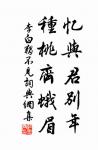 忆与君别年
种桃齐蛾眉
李白独不见词典网集